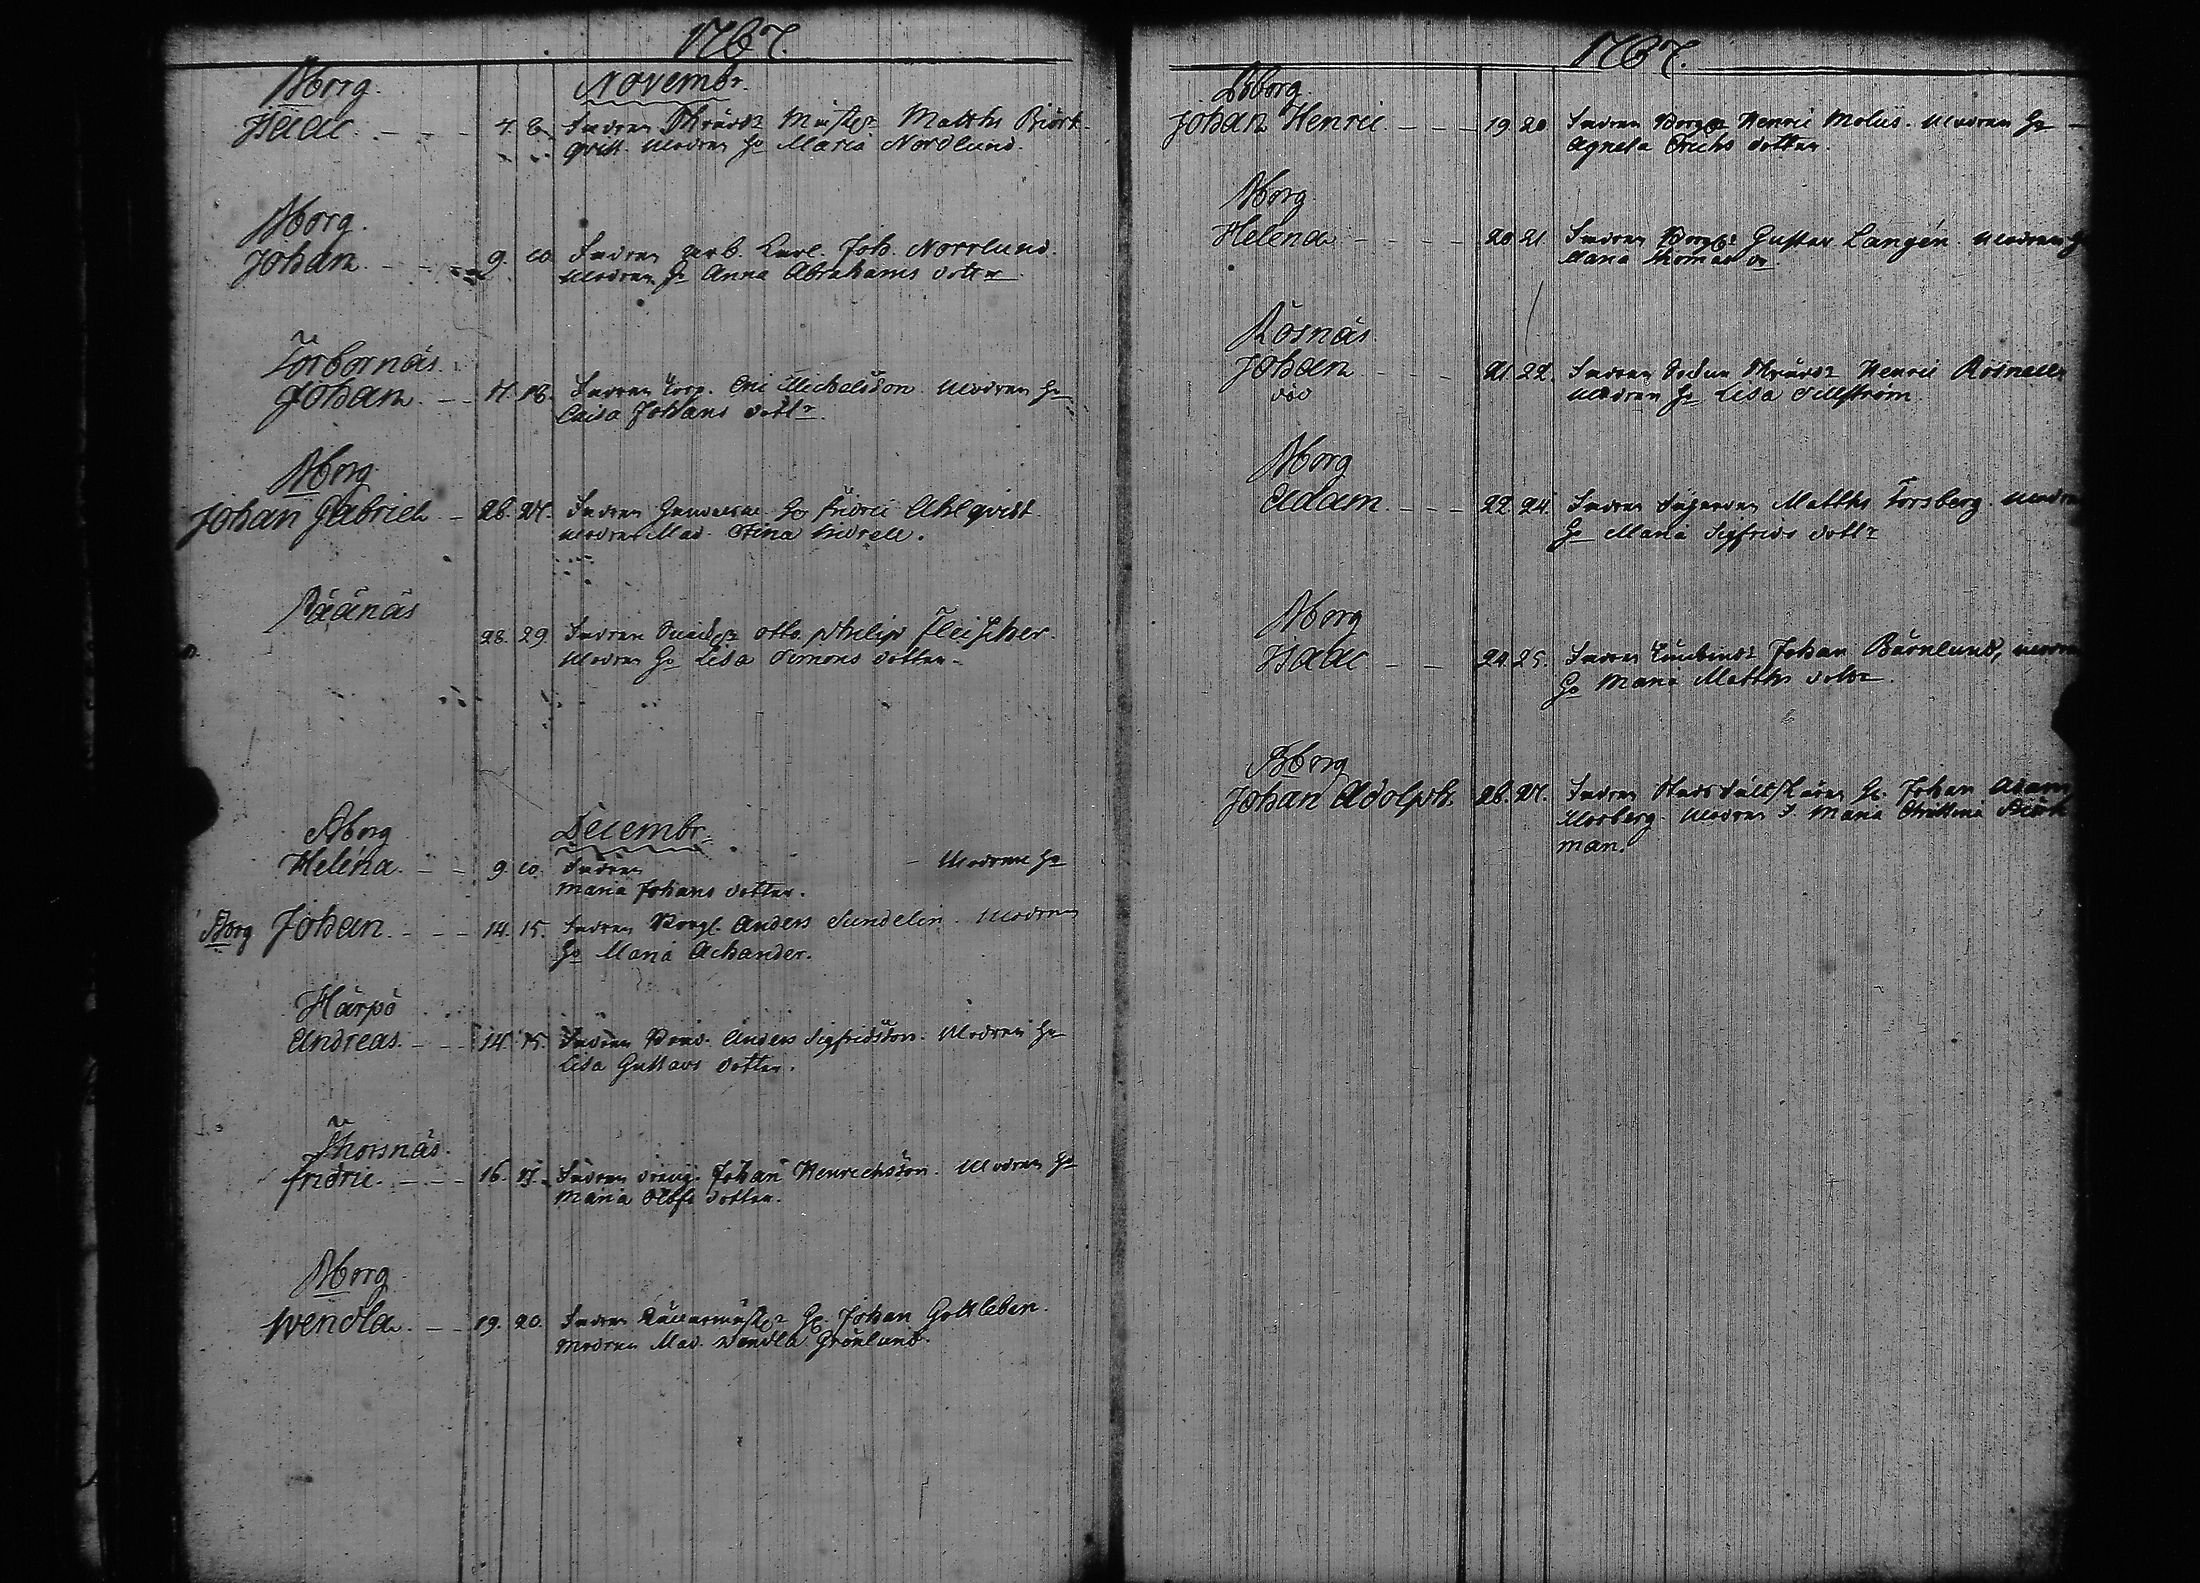 1767.
Novembr.
Bborg.
Isaac. 7. 8. Fadren Skrädd: Mäst: Matths Biörk-
qvist. Modren H: Maria Nordlund.
Bborg.
Johan. 9. 10. Fadren arb. Karl. Joh. Norrlund.
Modren H: Anna Abrahams doter
Torbornäs.
Johan. 17. 18. Fadren torp. Eric Michelsson. Modren H:
Caisa Johans dottr.
Bborg
Johan Gabriel 26. 27. Fadren H: Fridric Ahlqvist.
Modren Mad. Stina
Räänäs
28. 29 Fadren Otto Philip Fleischer.
Modren H: Lisa Simons dotter.
Decembr.
Bborg
Heléna. 9. 10. Fadren - Modren H:
Maria Johans dotter.
Bborg Johan. 14. 15. Fadren Borg: Anders Sundelin. Modren
H: Maria Achander.
Härpö
Andreas. 14. 15. Fadren Bond. Anders Sigfridsson. Modren H:
Lisa Gustavs dotter.
Thorsnäs.
fridric. 16. 17. Fadren dräng. Johan Henrichsson. Modren H:
Maria Olofs dotter.
Bborg
Wendla. 19. 20. Fadren H: Johan Gottleben.
Modren Mad. Wendla Grönlund.
1767.
Bborg.
Johan Henric 19 20 Fadren Borg: Henric Moliis. Modren H:
Agneta Erichs dotter.
Bborg
Helena 20 21 Fadren Borg: Gustav Langén. Modren H:
Maria Thomas dr
Rosnäs.
Johan 21. 22. Fadren Sockne Skrädd: Henric Rosnell
död Modren H: Lisa Sillström
Bborg
Adam. 22. 24. Fadren Matths Forsberg. Modren
H: Maria Sigfrids dottr
Bborg
Isaac 24. 25. Fadren Johan Barnlund, modren
H: Maria Matths dottr.
Bborg
Johan Adolph. 26. 27. Fadren H: Johan Adam
Moberg. Modren F. Maria Christina Biörk
man.